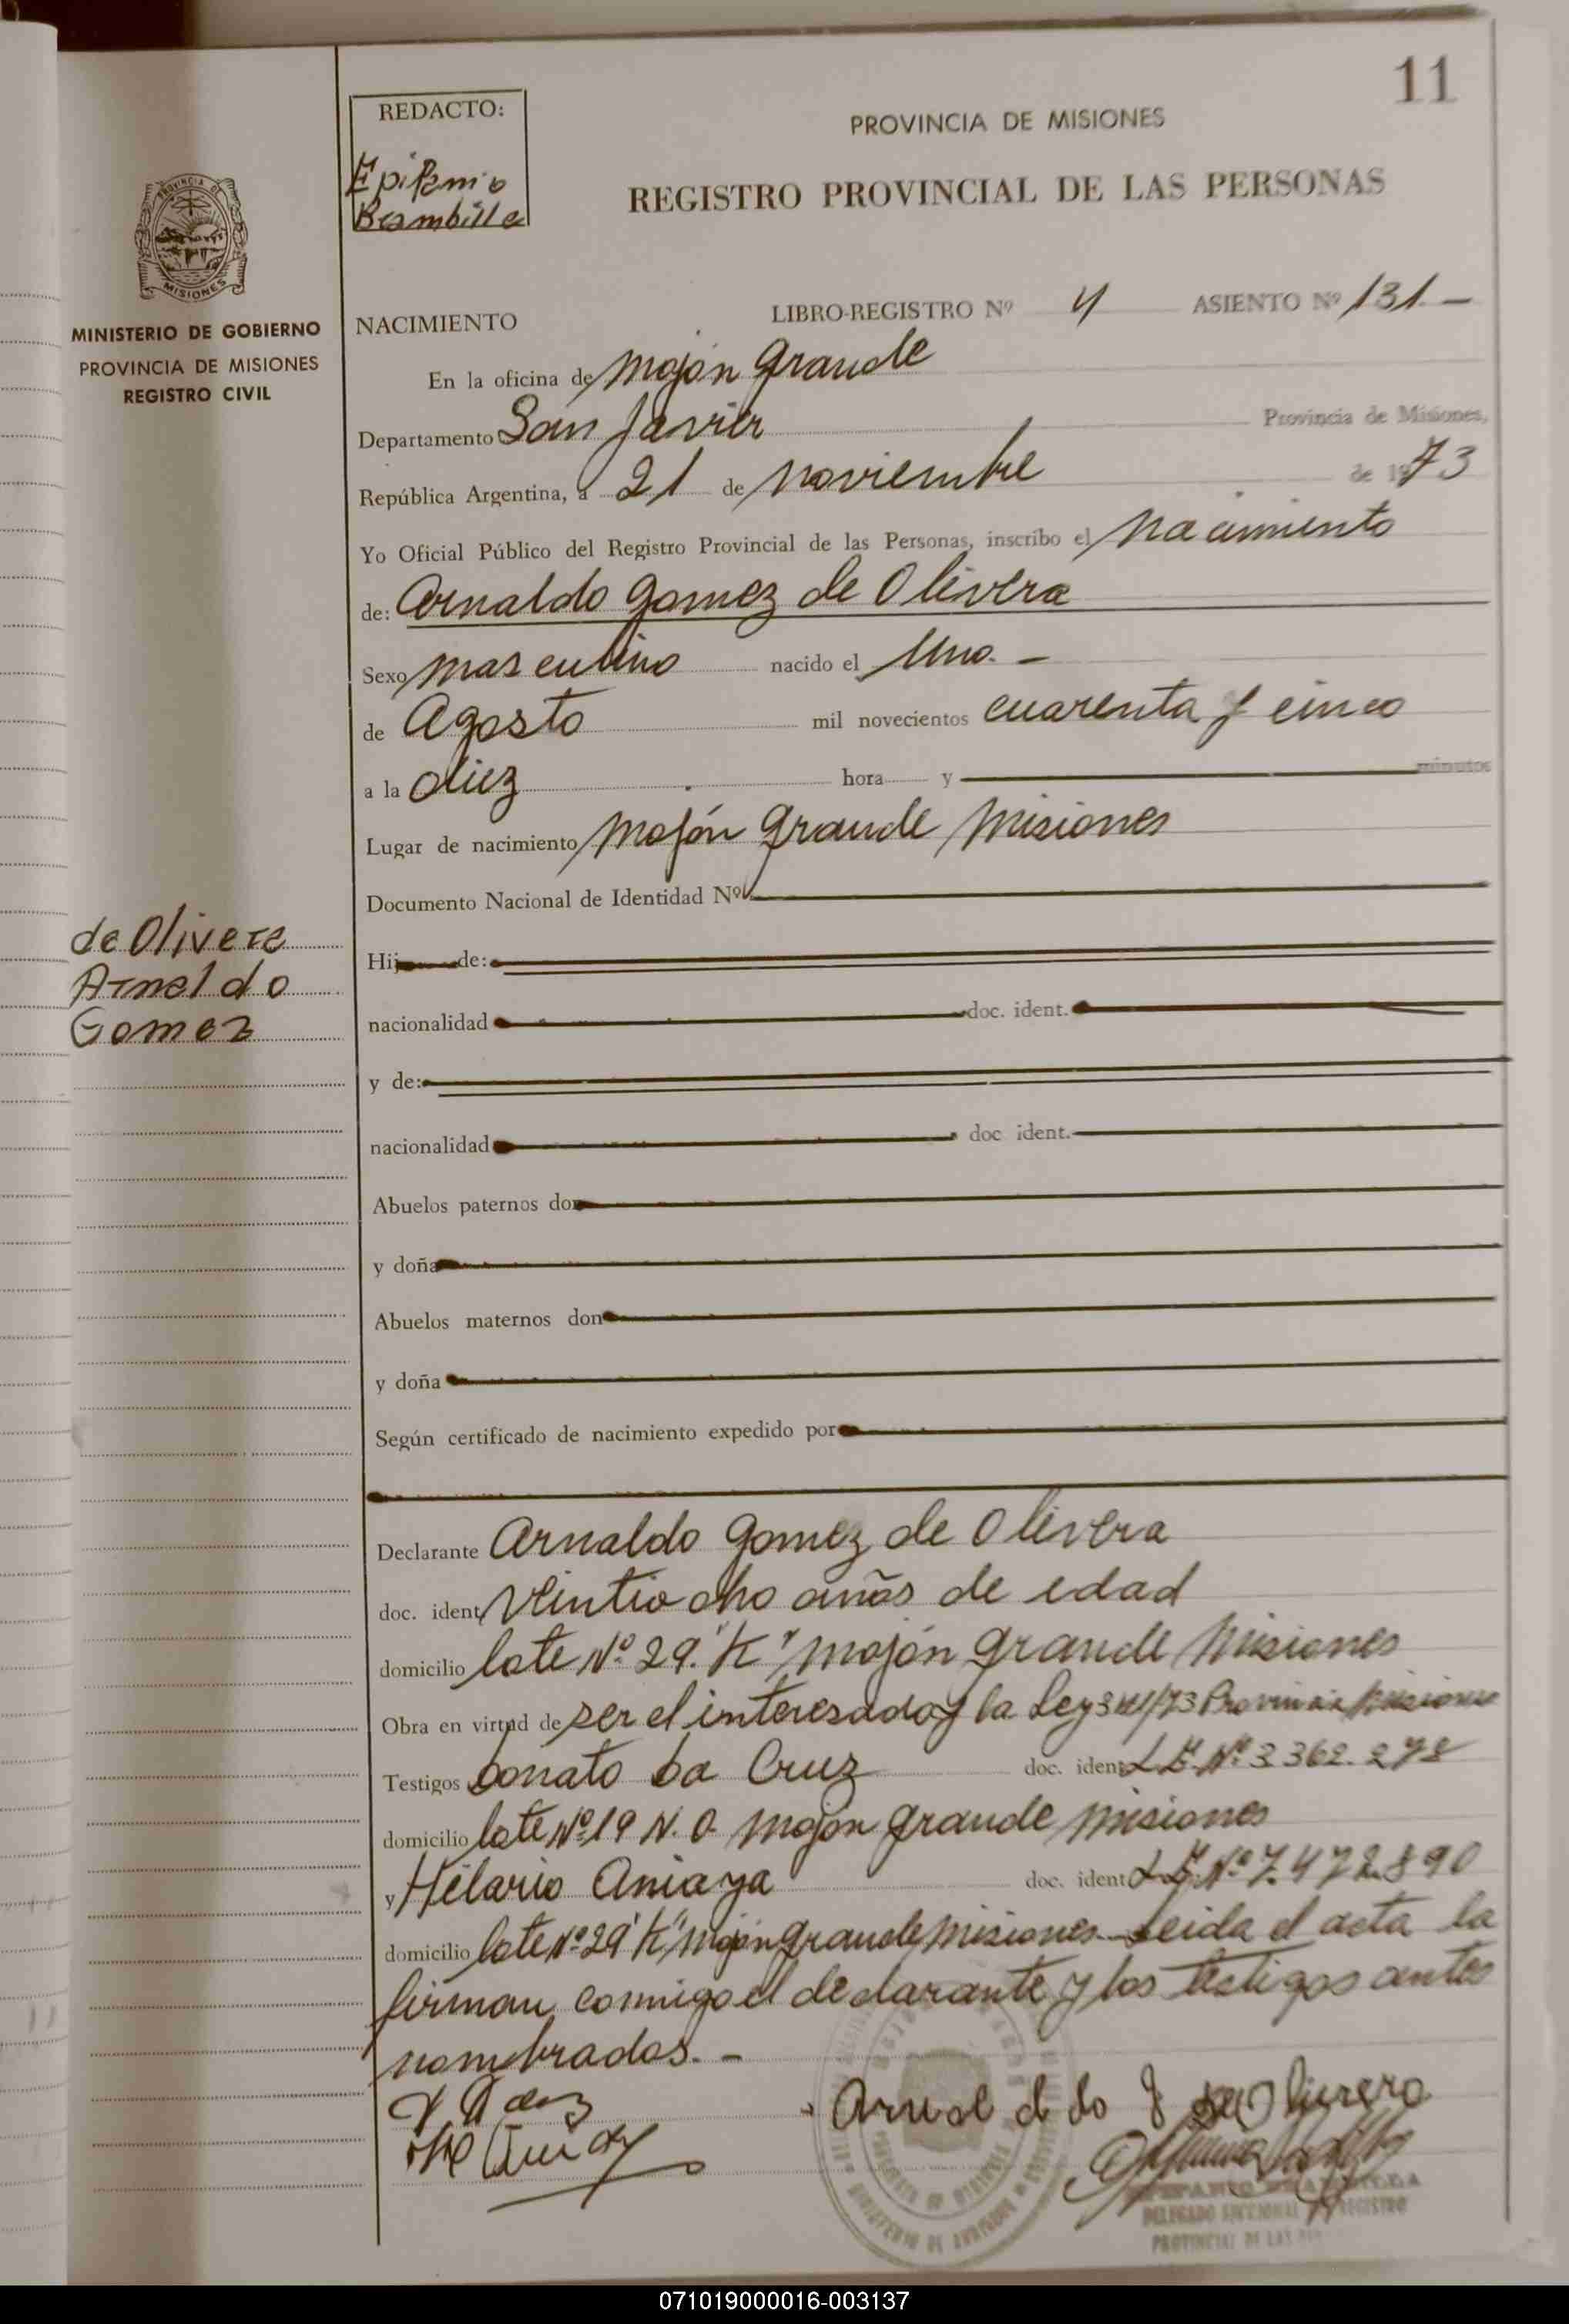 11
REDACTO:
Epifanio
Brambilla
PROVINCIA DE MISIONES
REGISTRO PROVINCIAL DE LAS PERSONAS
PROVINCIA DE
MISIONES
MINISTERIO DE GOBIERNO
PROVINCIA DE MISIONES
REGISTRO CIVIL
NACIMIENTO LIBRO-REGISTRO Nº 4 ASIENTO Nº 131.-
En la oficina de Mojón Grande
Departamento San Javier Provincia de Misiones,
República Argentina, a 21 de noviembre de 1973
Yo Oficial Público del Registro Provincial de las Personas, inscribo el nacimiento
de: Arnaldo Gomez de Olivera
Sexo masculino nacido el Uno.-
de Agosto mil novecientos cuarenta y cinco
a la diez hora y minutos
Lugar de nacimiento Mojón Grande Misiones
Documento Nacional de Identidad Nº
de Olivera
Arnaldo
Gomez
Hij de:
nacionalidad doc. ident.
y de:
nacionalidad doc ident.
Abuelos paternos don
y doña
Abuelos maternos don
y doña
Según certificado de nacimiento expedido por
Declarante Arnaldo Gomez de Olivera
doc. ident. Veintiocho años de edad
domicilio lote Nº 29."K" Mojón Grande Misiones
Obra en virtud de ser el interesado y la Ley Provincia Misiones
Testigos Donato Da Cruz doc. ident. L.E. Nº 3.362.278
domicilio lote Nº 19 N.O. Mojón Grande Misiones
y Hilario Amaya doc. ident. L.E. Nº 7.472.890
domicilio lote Nº 29 "K" Mojón Grande Misiones.- Leida el acta la
firman conmigo el declarante y los testigos antes
nombrados.-
Arnaldo g de Olivera
DELEGADO SECCIONAL REGISTRO
PROVINCIAL DE LAS
071019000016-003137